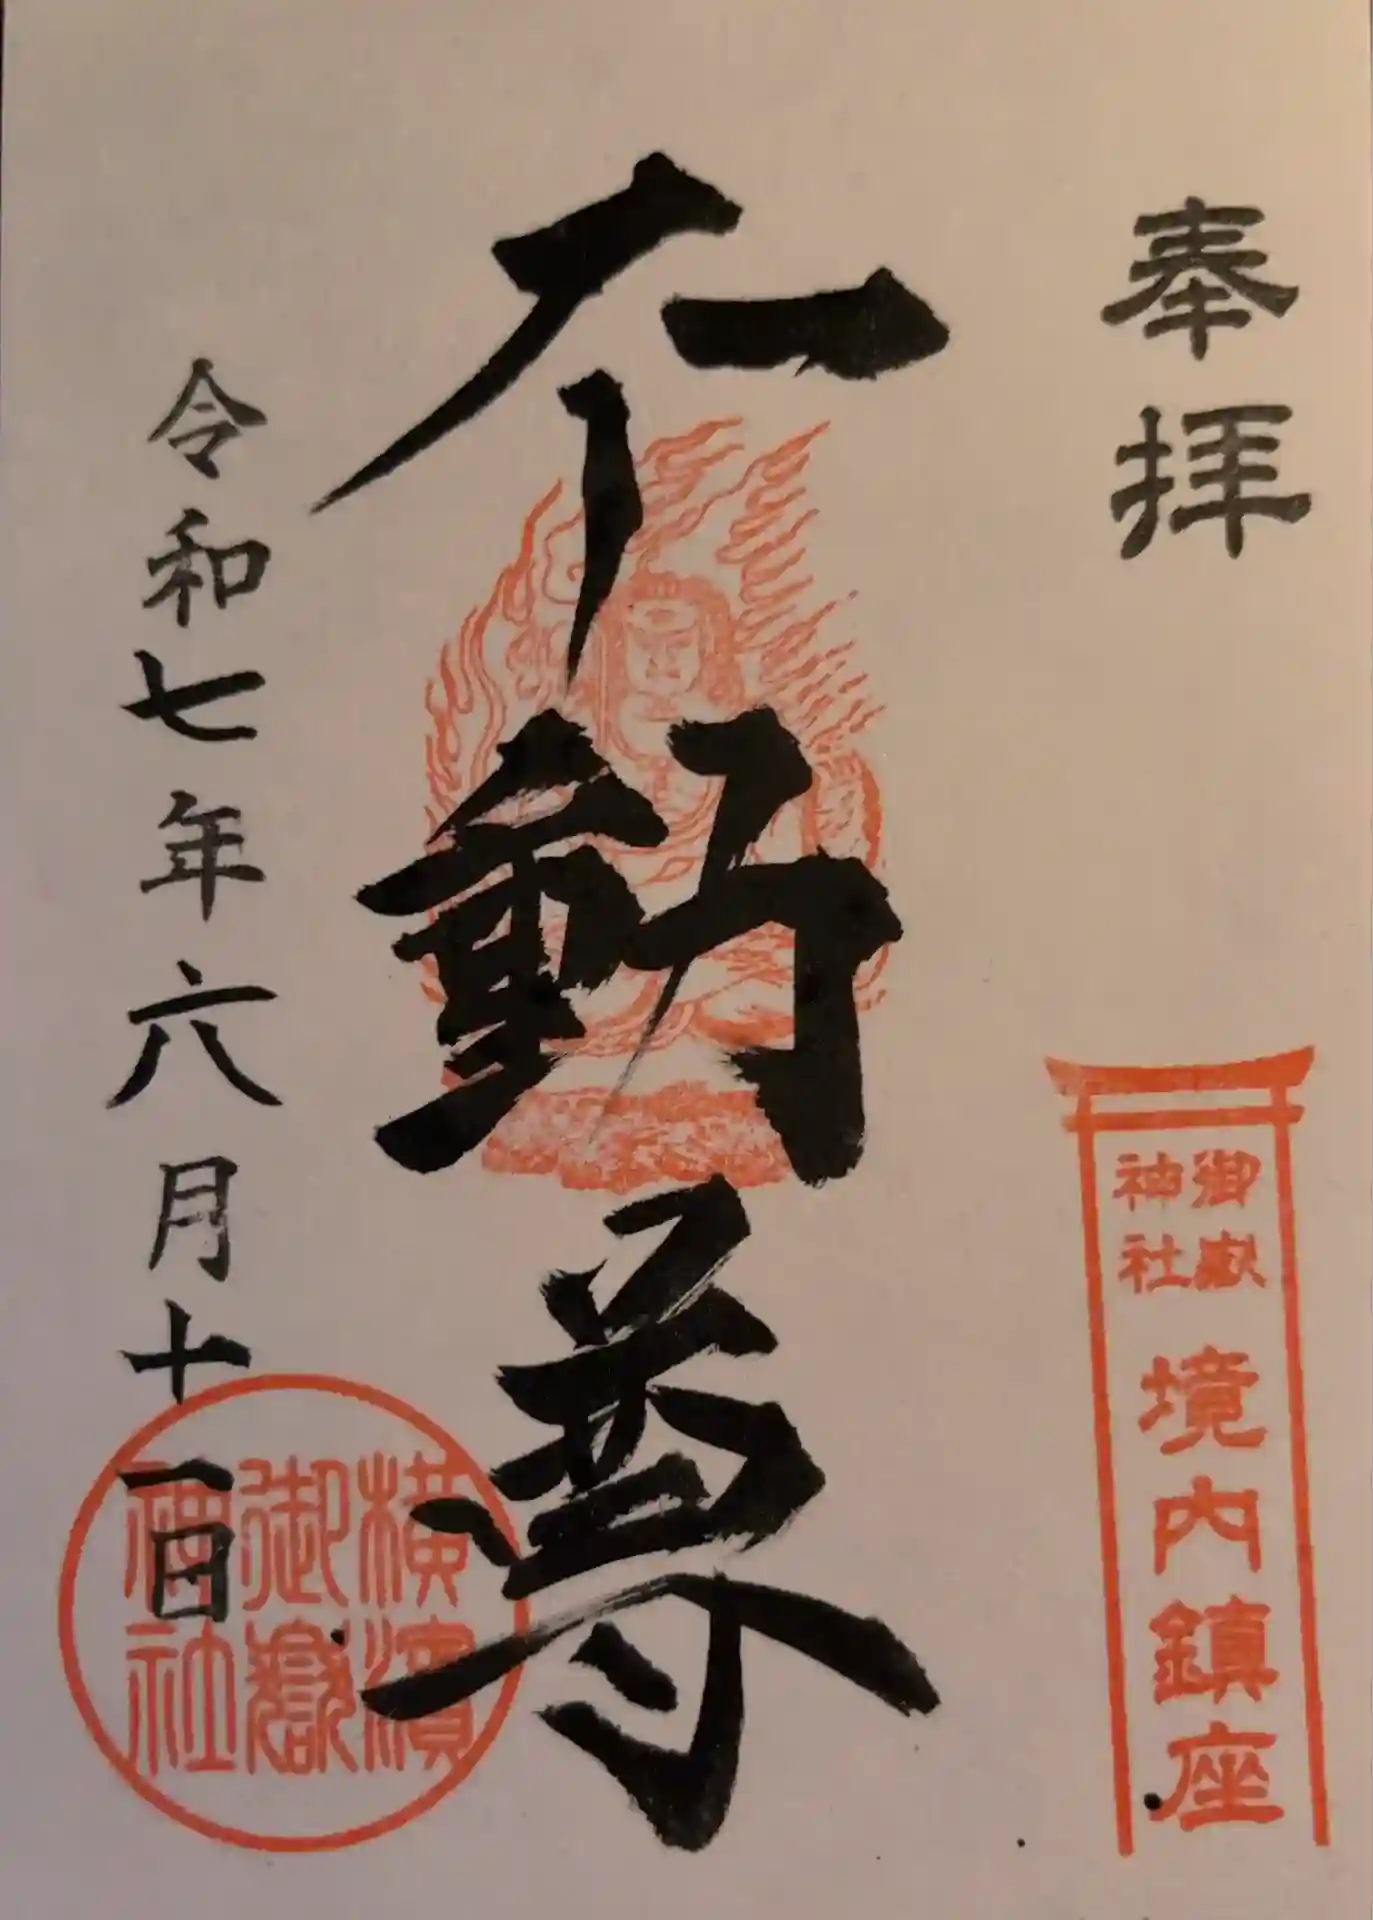 奉拝
御嶽
神社
境内鎮座
不動尊
令和七年六月十一日
横濵
御嶽
神社